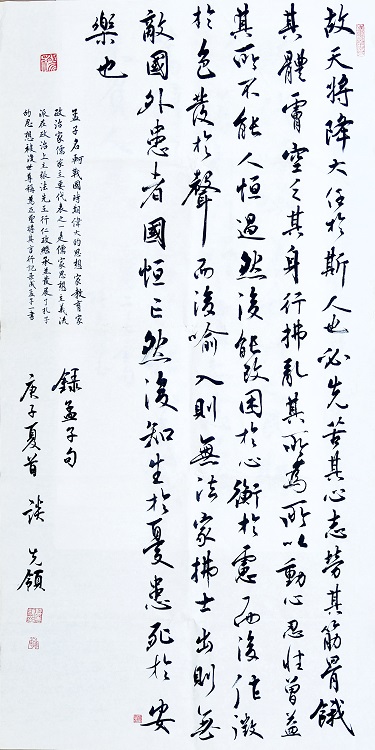 故天將降大任於斯人也必先苦其心志勞其筋骨餓
其體膚空乏其身行拂亂其所為所以動心忍性曾益
其所不能人恒過然後能改困於心衡於慮而後作徵
於色發於聲而後喻入則無法家拂士出則無
敵國外患者國恒亡然後知生於憂患死於安
樂也
孟子名軻戰國時期偉大的思想家教育家
政治家儒家主要代表之一是儒家思想主義流
派在政治上主張法先王行仁政繼承並發展了孔子
的思想被後世尊稱為亞聖將其言行記錄成孟子一書
錄孟子句
庚子夏首 談先領